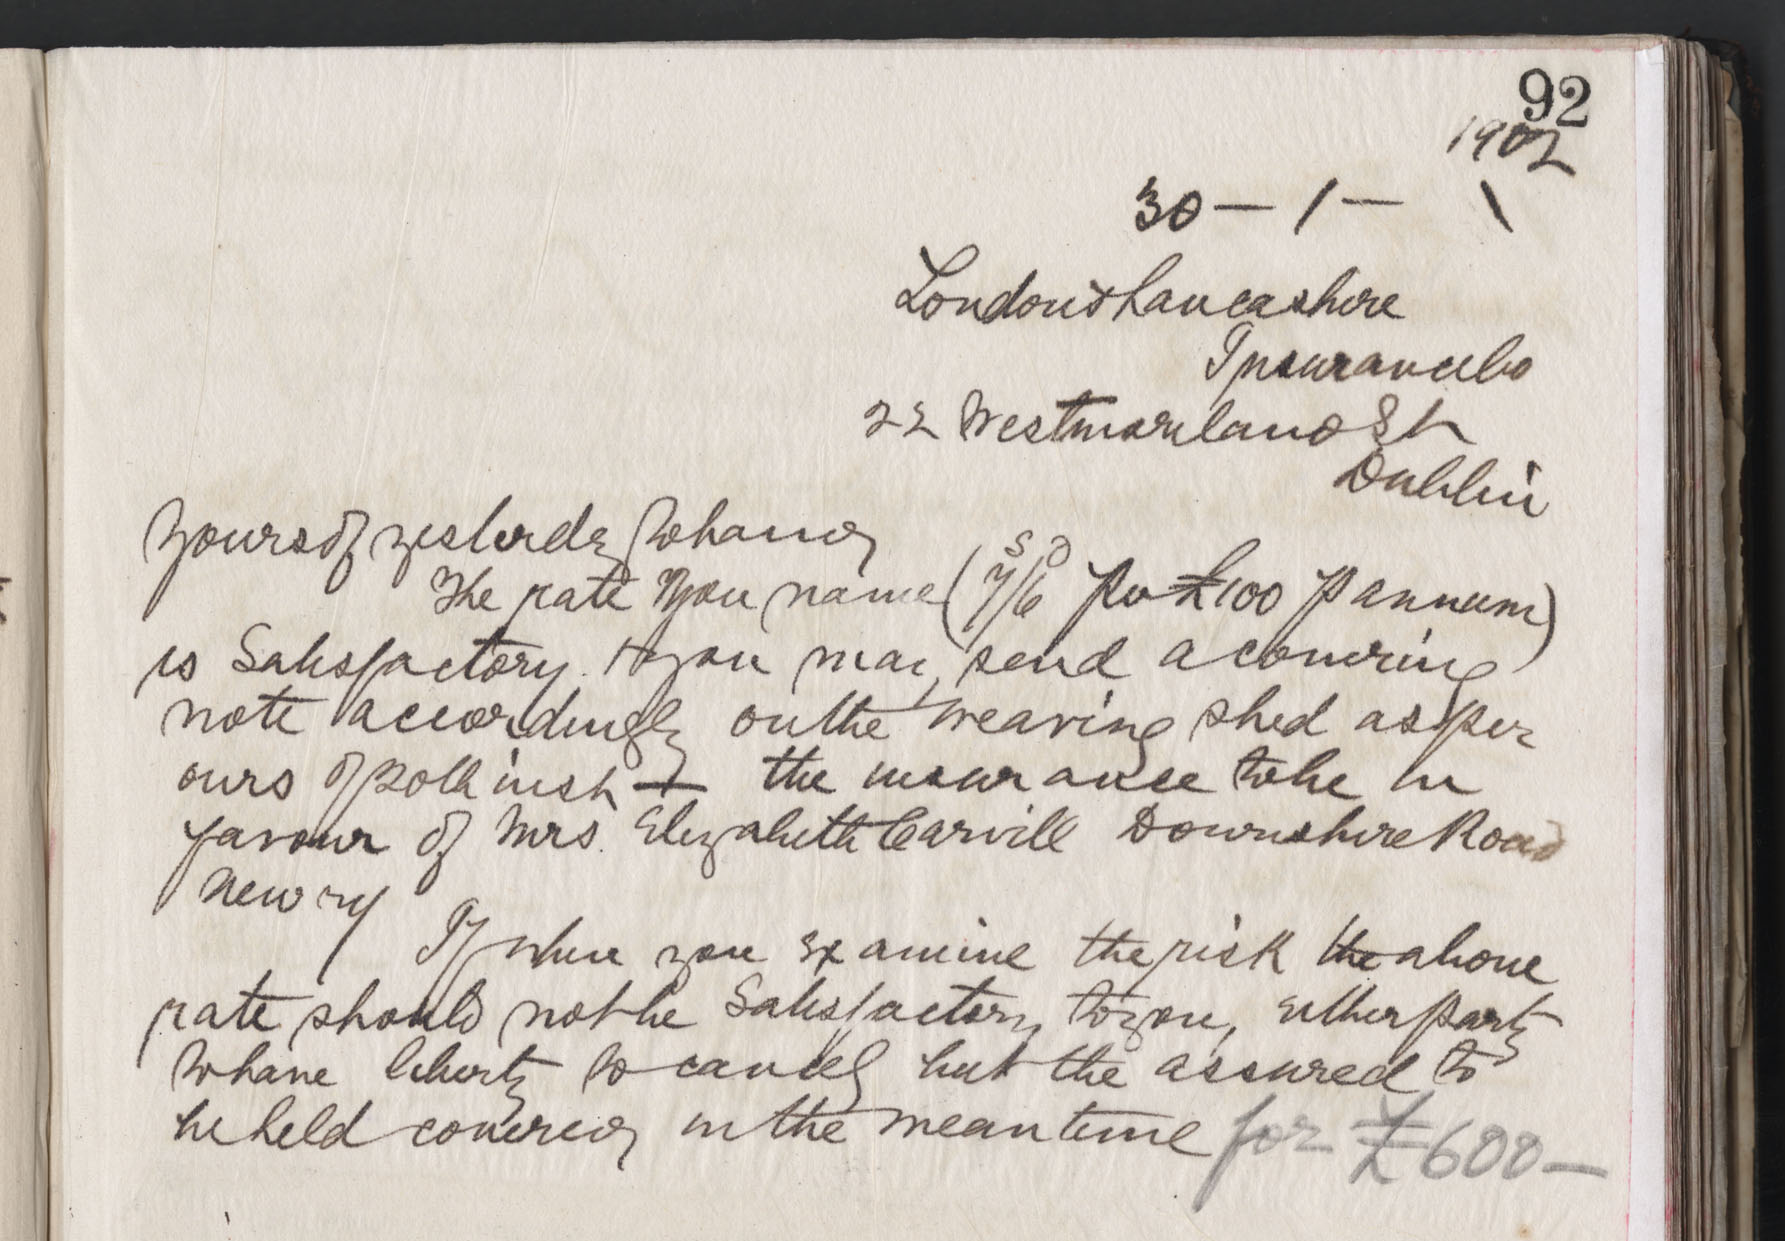 92
1902
30 - 1 - \
London & Lancashire
Insurance Co
22 Westmorland St
Dublin
Yours of yesterday to hand
The rate you name (7S/6D per £100 p annum)
is Satisfactory. & you may send a covering
note accordingly on the weaving shed as per
ours of 20th inst — the insurance to be in
favour of Mrs. Elizabeth Carvill Downshire Road
Newry
If when you examine the risk the above
rate should not be Satisfactory to you, either party
to have liberty to cancel but the assured to
be held covered in the meantime for £600 —